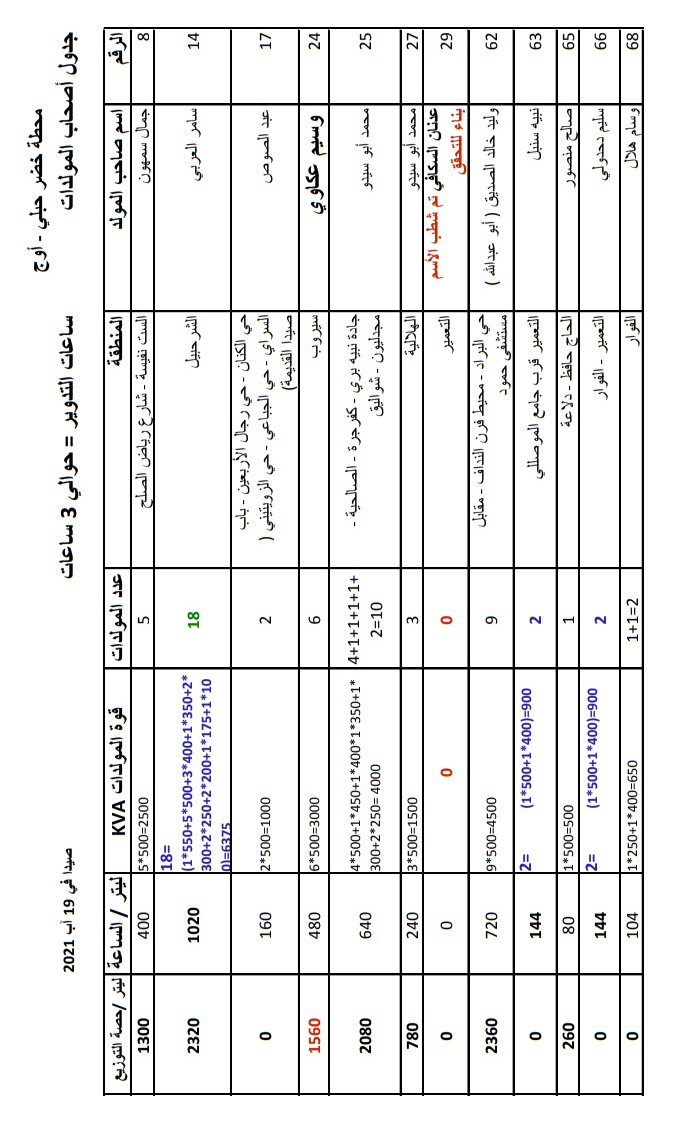 محطة خضر حبلي - أوج
جدول أصحاب المولدات
ساعات التدوير = حوالي 3 ساعات
صيدا في 19 آب 2021
الرقم اسم صاحب المولد المنطقة عدد المولدات قوة المولدات KVA ليتر / الساعة ليتر /حصة التوزيع
8 جمال سمهون الست نفيسة - شارع رياض الصلح 5 5*500=2500 400 1300
14 سامر العربي الشرحبيل 18 18=
(1*550+5*500+3*400+1*350+2*
300+2*250+2*200+1*175+1*10
0)=6375 1020 2320
17 عبد الصوص حي الكنان - حي رجال الأربعين - باب
السراي - حي الجباعي - حي الزويتيني (
صيدا القديمة) 2 2*500=1000 160 0
24 وسيم عكاوي سيروب 6 6*500=3000 480 1560
25 محمد أبو سيدو جادة نبيه بري - كفرجرة - الصالحية -
مجدليون - شواليق 4+1+1+1+1+
2=10 4*500+1*450+1*400*1*350+1*
300+2*250= 4000 640 2080
27 محمد أبو سيدو الهلالية 3 3*500=1500 240 780
29 عدنان السكافي تم شطب الأسم
بناء للتحقق التعمير 0 0 0 0
62 وليد خالد الصديق ( أبو عبدالله ) حي البراد - محيط فرن النداف - مقابل
مستشفى حمود 9 9*500=4500 720 2360
63 نبيه سنبل التعمير قرب جامع الموصللي 2 2= (1*500+1*400)=900 144 0
65 صالح منصور الحاج حافظ - دلاعة 1 1*500=500 80 260
66 سليم نحدولي التعمير - الفوار 2 2= (1*500+1*400)=900 144 0
68 وسام هلال الفوار 1+1=2 1*250+1*400=650 104 0